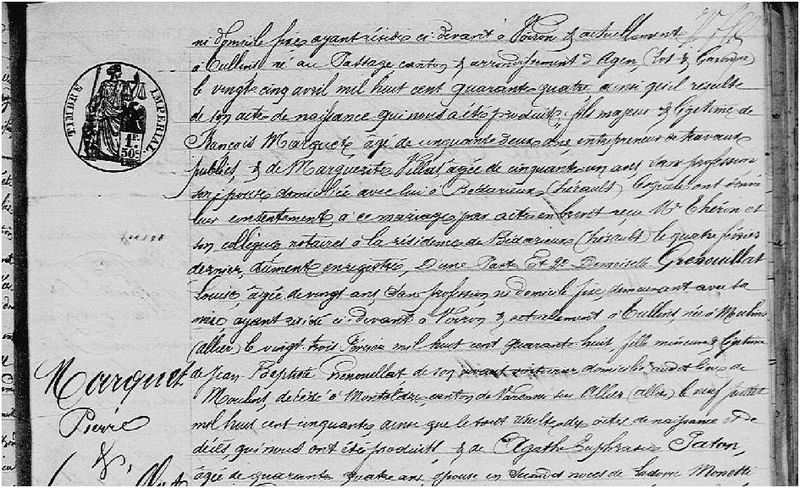 ni domicile fixe ayant résidé ci-devant à Voiron & actuellement
à Tullins né au Passage canton & arrondissement d'Agen (Lot & Garonne)
le vingt cinq avril mil huit cent quarante quatre ainsi qu'il résulte
de son acte de naissance qui nous a été produit, fils majeur & légitime de
François Marquet âgé de cinquante deux ans entrepreneur de travaux
publics & de Marguerite Villas âgée de cinquante un ans sans profession
son épouse domiciliée avec lui à Bédarieux (hérault) lesquels ont donné
leur consentement à ce mariage par acte en brevet reçu Me Thérin et
son collègue notaires à la résidence de Bédarieux (hérault) le quatre février
dernier, dûment enregistré, D'une Part Et 2° Demoiselle Grenouillat
Louise, âgée de vingt ans sans profession ni domicile fixe, demeurant avec sa
mère ayant résidé ci-devant à Voiron & actuellement à Tullins née à Moulins
(allier) le vingt trois février mil huit cent quarante huit fille mineure & légitime
de Jean Baptiste Grenouillat de son vivant domicilié audit lieu de
Moulins, décédé à Montaldre canton de Varenne sur Allier (allier) le neuf juillet
mil huit cent cinquante ainsi que le tout résulte des actes de naissance et de
décès qui nous ont été produits & de Agathe Euphrasie Paton,
âgée de quarante quatre ans, épouse en secondes noces de Ludovic Monetti
TIMBRE IMPÉRIAL
1F.
50c
Marquet
Pierre
&